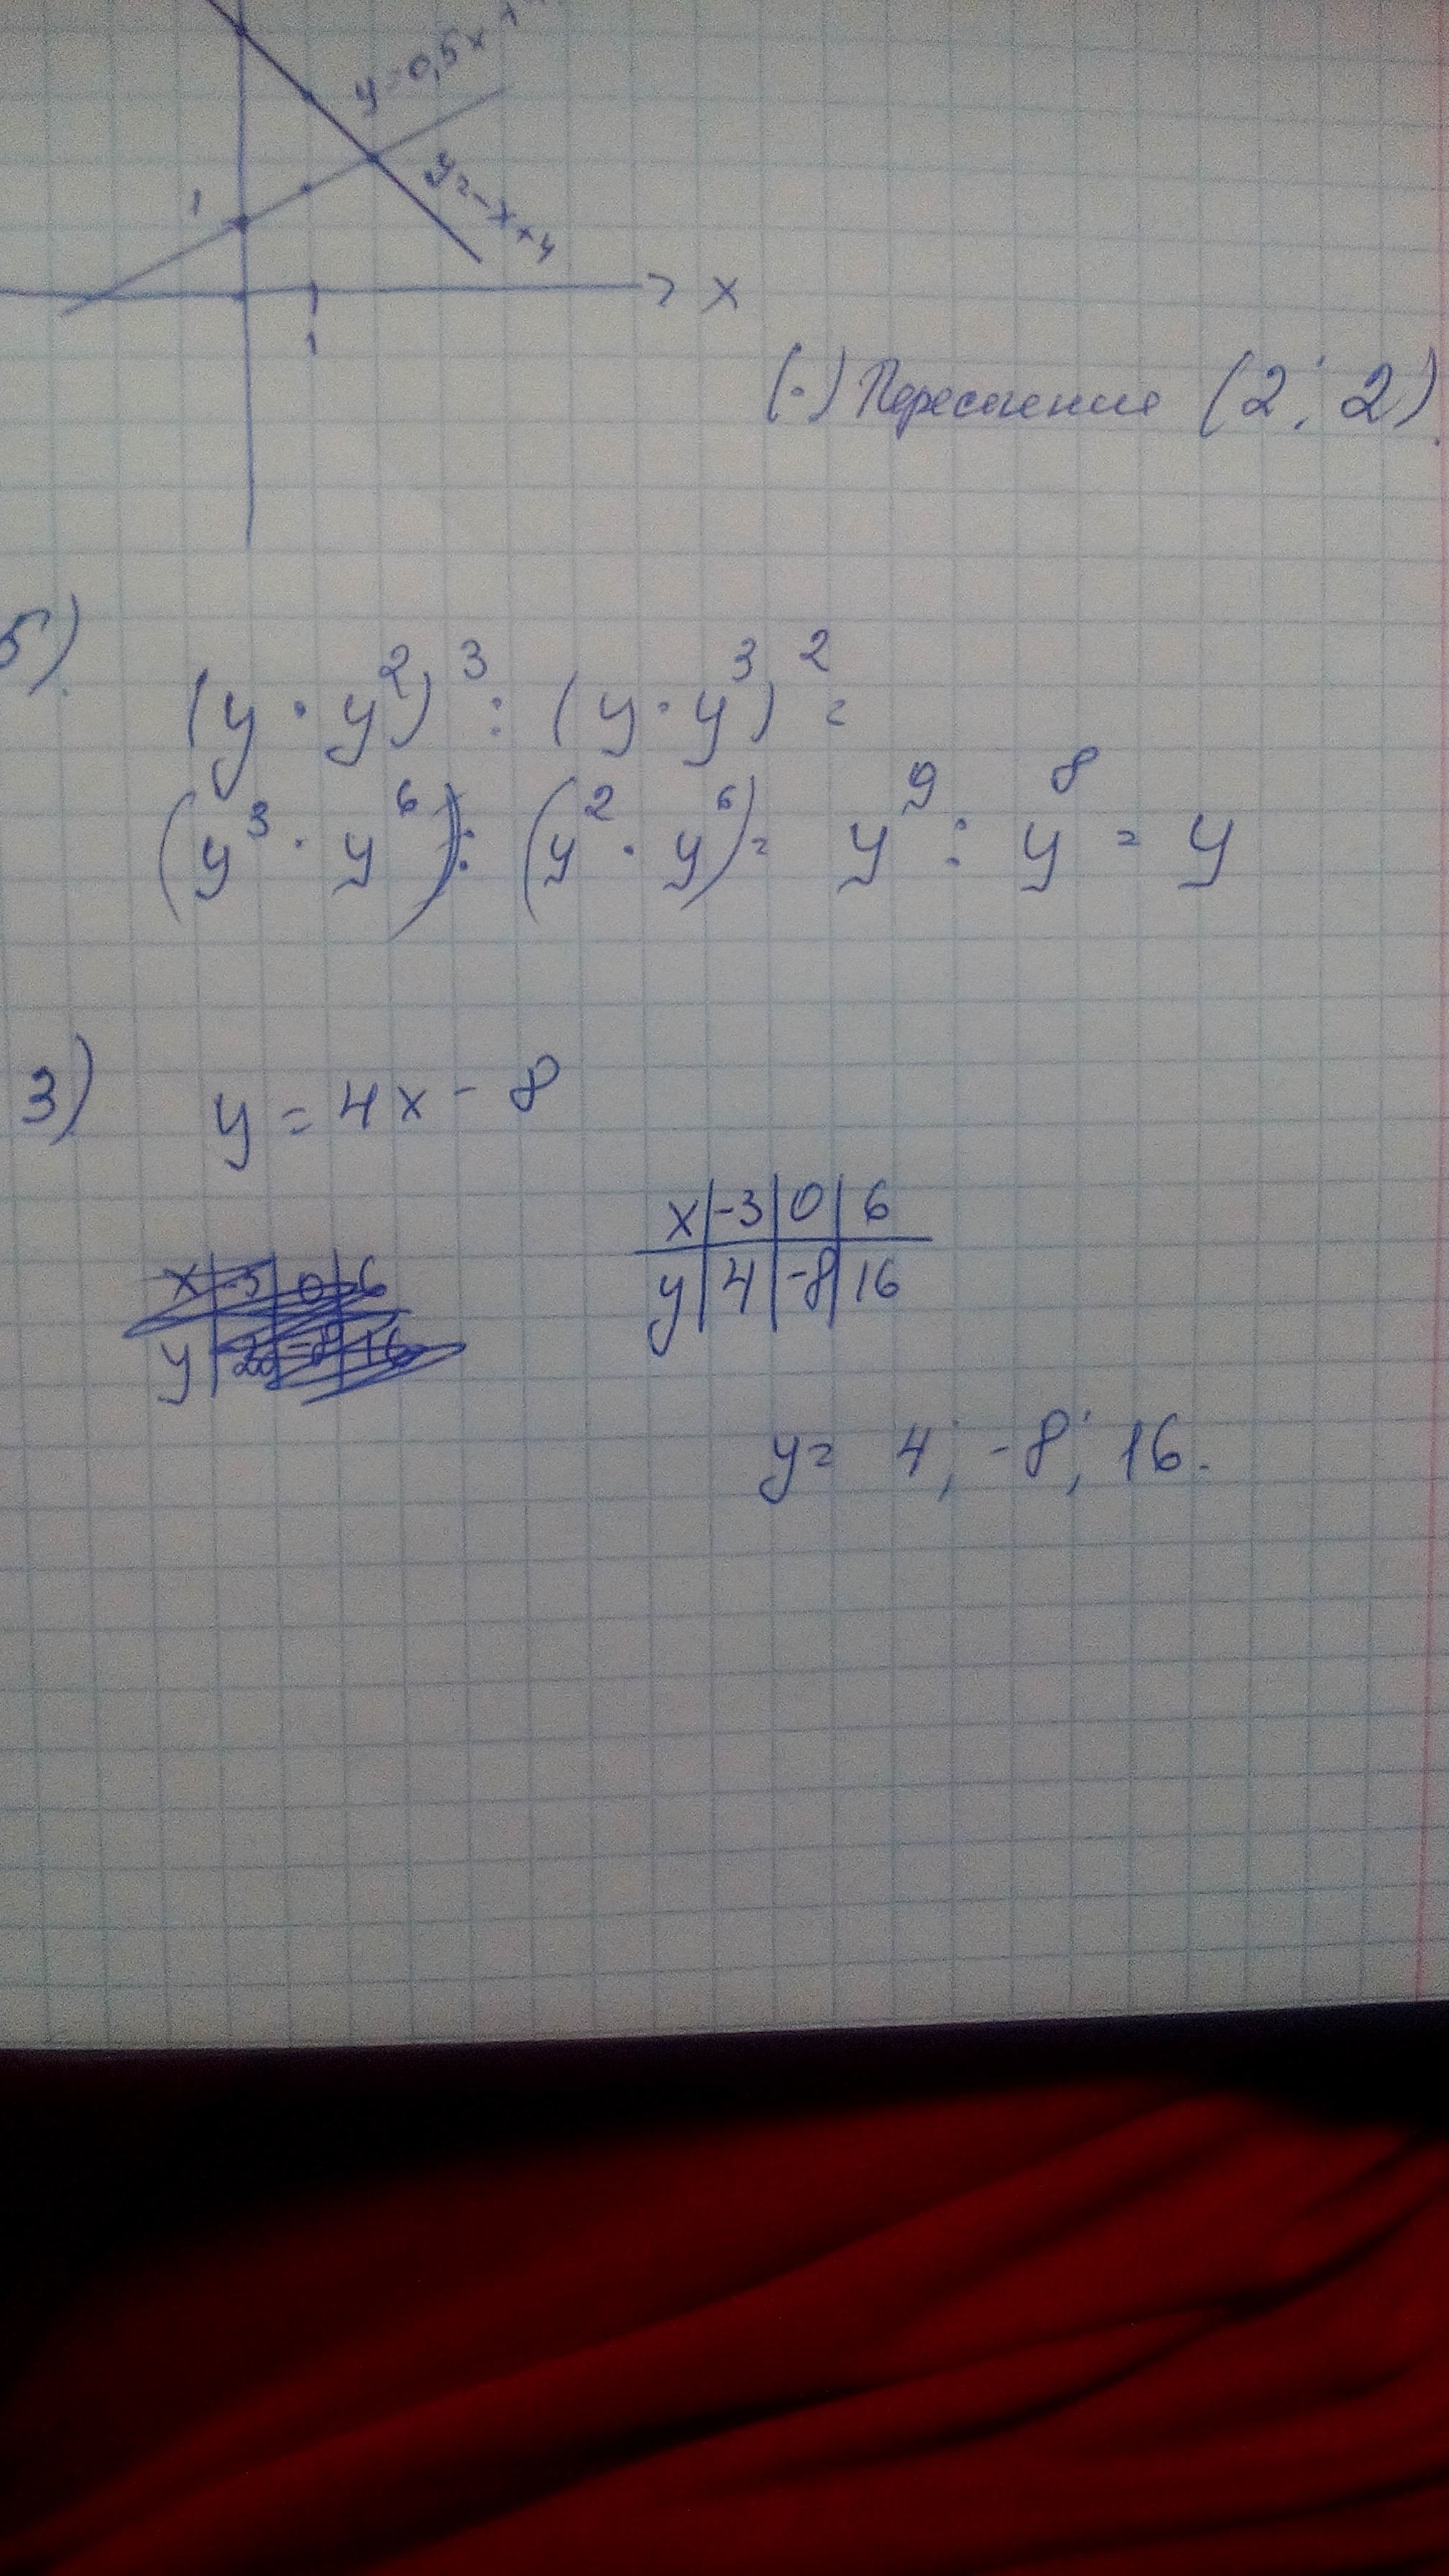 y=0,5x+
y=-x+4
1
x
1
(·) Пересечения (2; 2).
5).
(y · y²)³ : (y · y³)² =
(y³ · y⁶) : (y² · y⁶) = y⁹ : y⁸ = y
3)
y = 4x - 8
x | -3 | 0 | 6
y | 4 | -8 | 16
x 0 6
y 20 -8 16
y = 4; -8; 16.